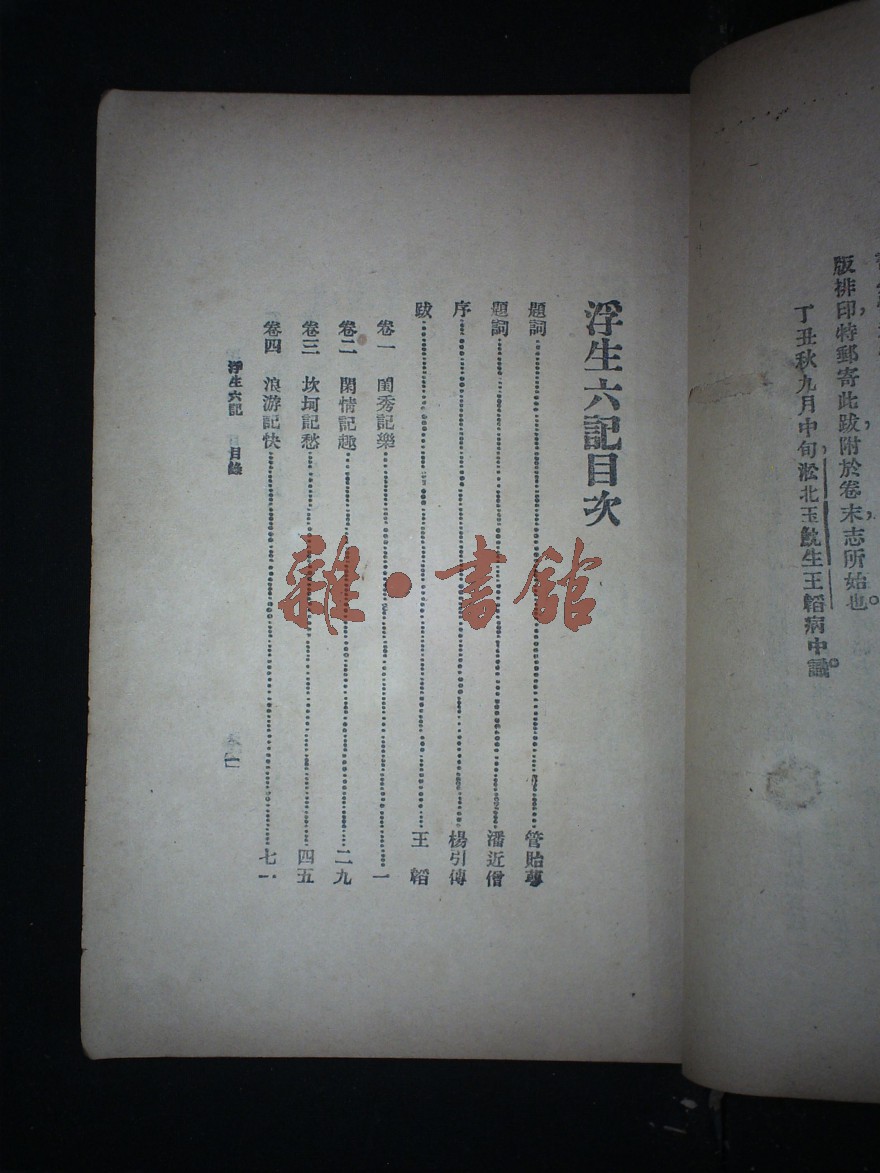 版排印,特郵寄此跋,附於卷末,志所始也。
丁丑秋九月中旬,淞北玉魫生王韜病中識。
浮生六記目次
題詞……管貽萼
題詞……潘近僧
序……楊引傳
跋……王韜
卷一 閨秀記樂……一
卷二 閑情記趣……二九
卷三 坎坷記愁……四五
卷四 浪游記快……七一
浮生六記 目錄 一
雜·書館